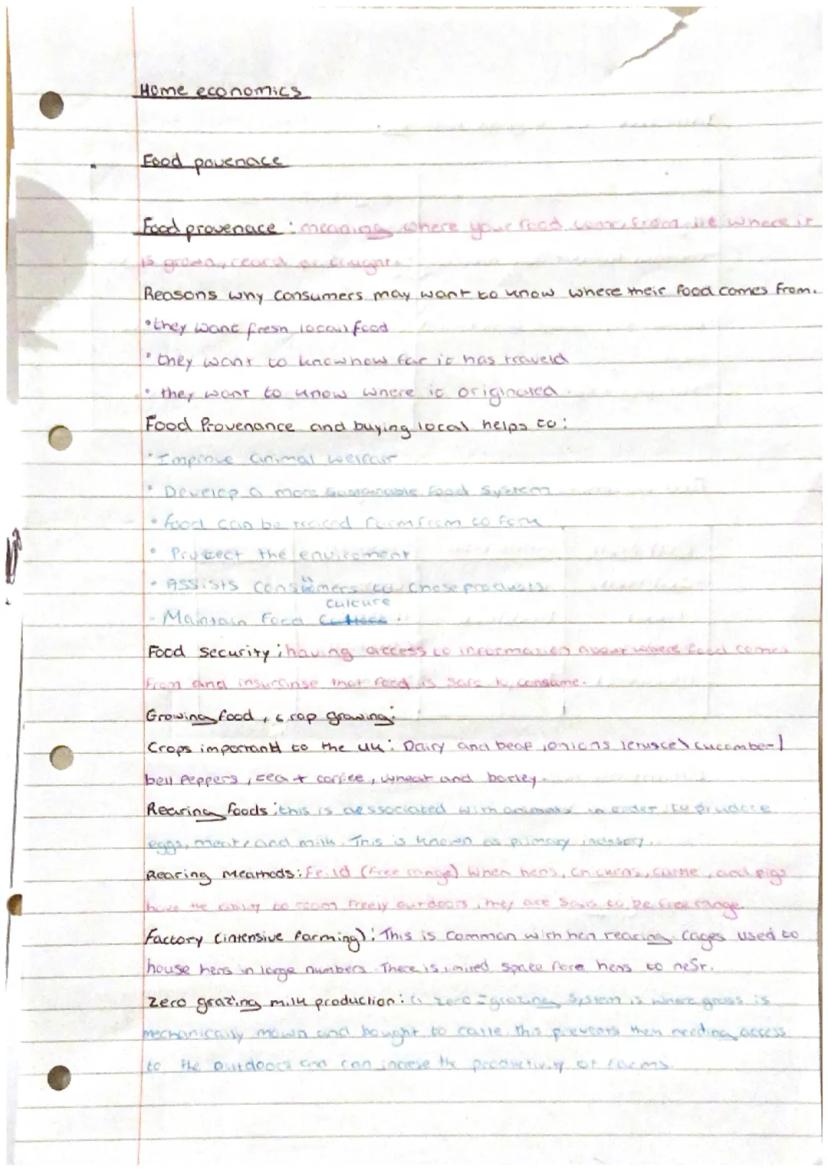 Home economics
Food povenace
Food provenace : meaning where your food come from, ie where it
is grown, reard or caught.
Reasons why consumers may want to know where their food comes from.
• they want fresh local food
• they want to know how far it has traveld
• they want to know where it originated.
Food Provenance and buying local helps to :
• Improve animal welfair
• Develop a more sustainable food system
• food can be traced farm from to fork
• Protect the enviroment
• Assists consumers to chose products
culture
- Maintain food
Food security : having access to information about where food comes
from and insurinse that food is safe to consume.
Growing food, crop growing:
Crops important to the uk : Dairy and beaf, onions, cucumber/
bell peppers, tea + coffee, wheat and barley.
Rearing foods : this is aessociated with animals in order to produce
eggs, meat, and milk. This is known as primary industry.
Rearing meathods : Feild (free range) when hens, chickens, cattle, and pigs
have the ability to roam freely outdoors, they are said to be free range.
Factory (intensive farming) : This is common with hen rearing cages used to
house hens in large numbers. There is limited space for hens to nest.
Zero grazing milk production : a zero-grazing system is where grass is
mechanically mown and bought to cattle. this prevents them needing access
to the outdoors and can increse the productivity of farms.